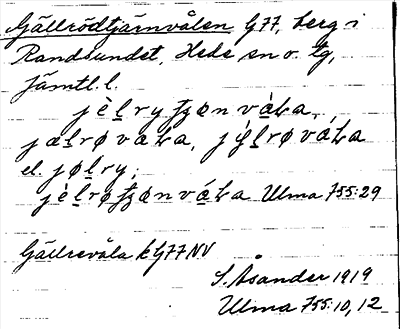 Gällrödtjärnvålen G77, berg i
Randsundet, Hede sn o. tg,
Jämtl. l.
jèl̠ryʈʂønvàL̵a,
jæl̠røvæL̵a, jǿl̠røváL̵a
el. jøl̠ry;
jèl̠røʈʂønváL̵a Ulma 755:29
Gällrevåla k G77 NV
S. Åsander 1919
Ulma 755:10, 12